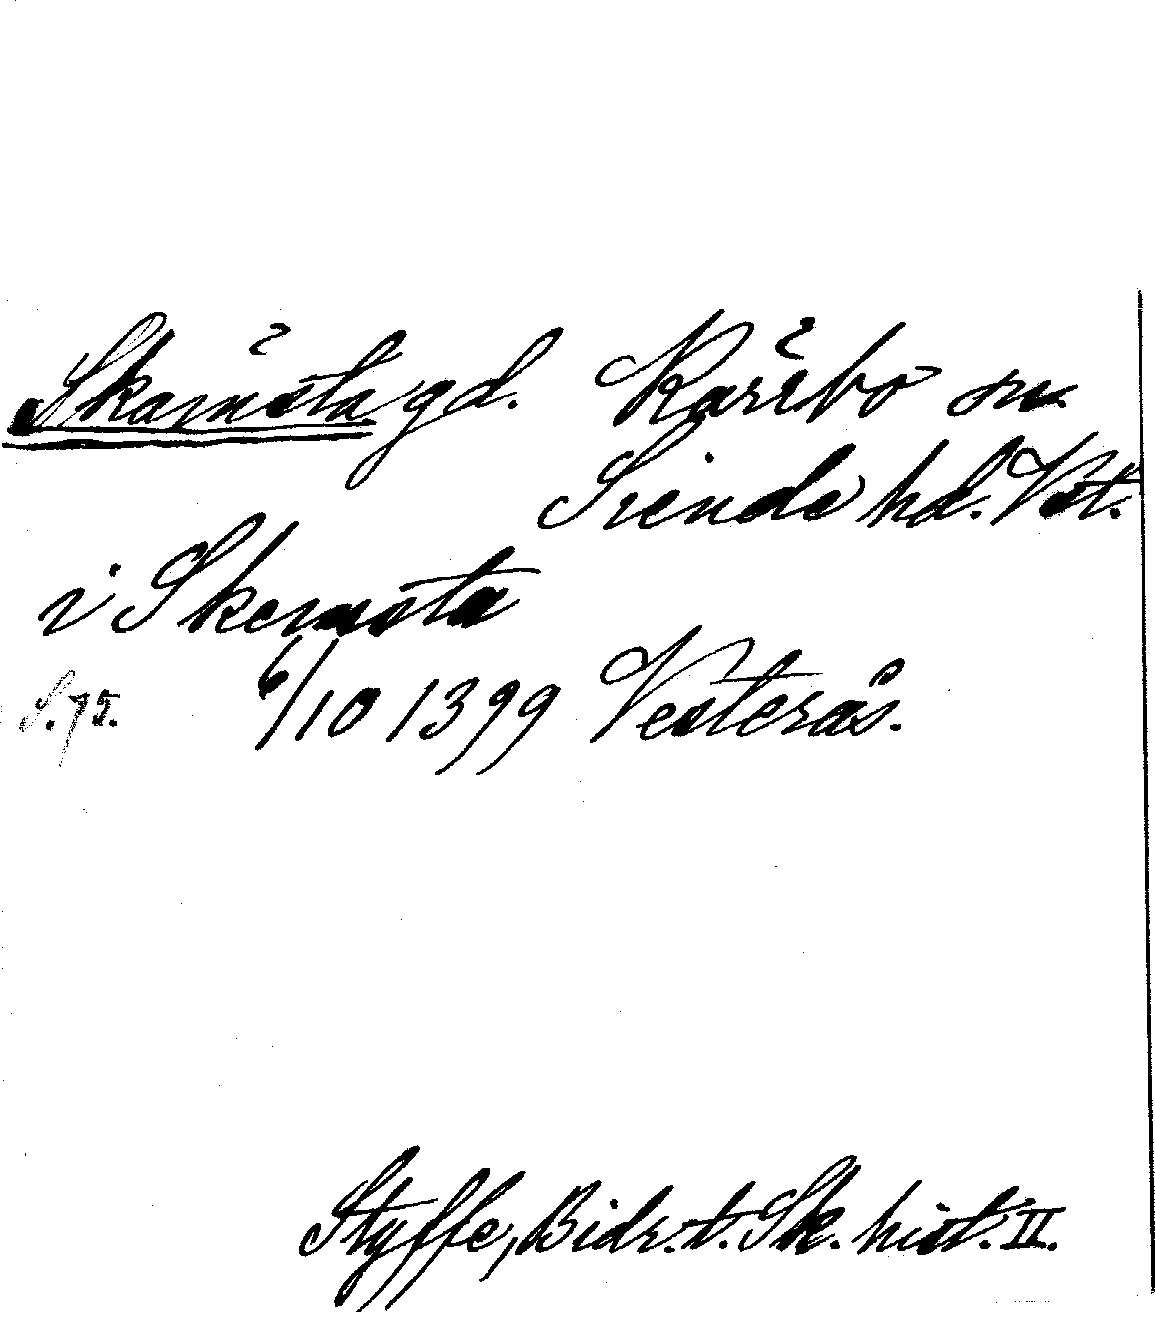 Skamsta gd. Kärrbo sn.
Siende hd. Vst.
i Skemsta
S. 75. 6/10 1399 Vesterås.
Styffe, Bidr. t. Sk. hist. II.